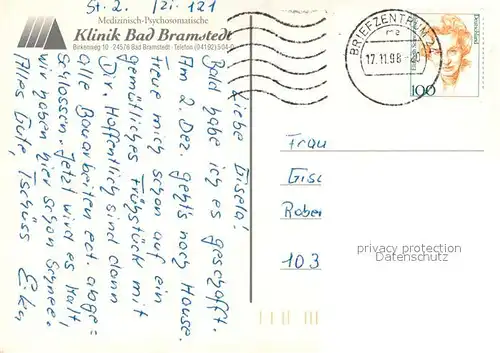 St. 2. Zi. 121
Medizinisch-Psychosomatische
Klinik Bad Bramstedt
Birkenweg 10 · 24576 Bad Bramstedt · Telefon (04192) 504-0
Liebe Gisela!
Bald habe ich es geschafft.
Am 2. Dez. geht's nach Hause.
Freue mich schon auf ein
gemütliches Frühstück mit
Dir. Hoffentlich sind dann
alle Bauarbeiten ect. abge=
schlossen. Jetzt wird es kalt,
wir haben hier schon Schnee.
Alles Gute, Tschüss
BRIEFZENTRUM 24
17.11.98 - 20
Deutschland
100
Frau
Gise
Rober
103
privacy protection
Datenschutz